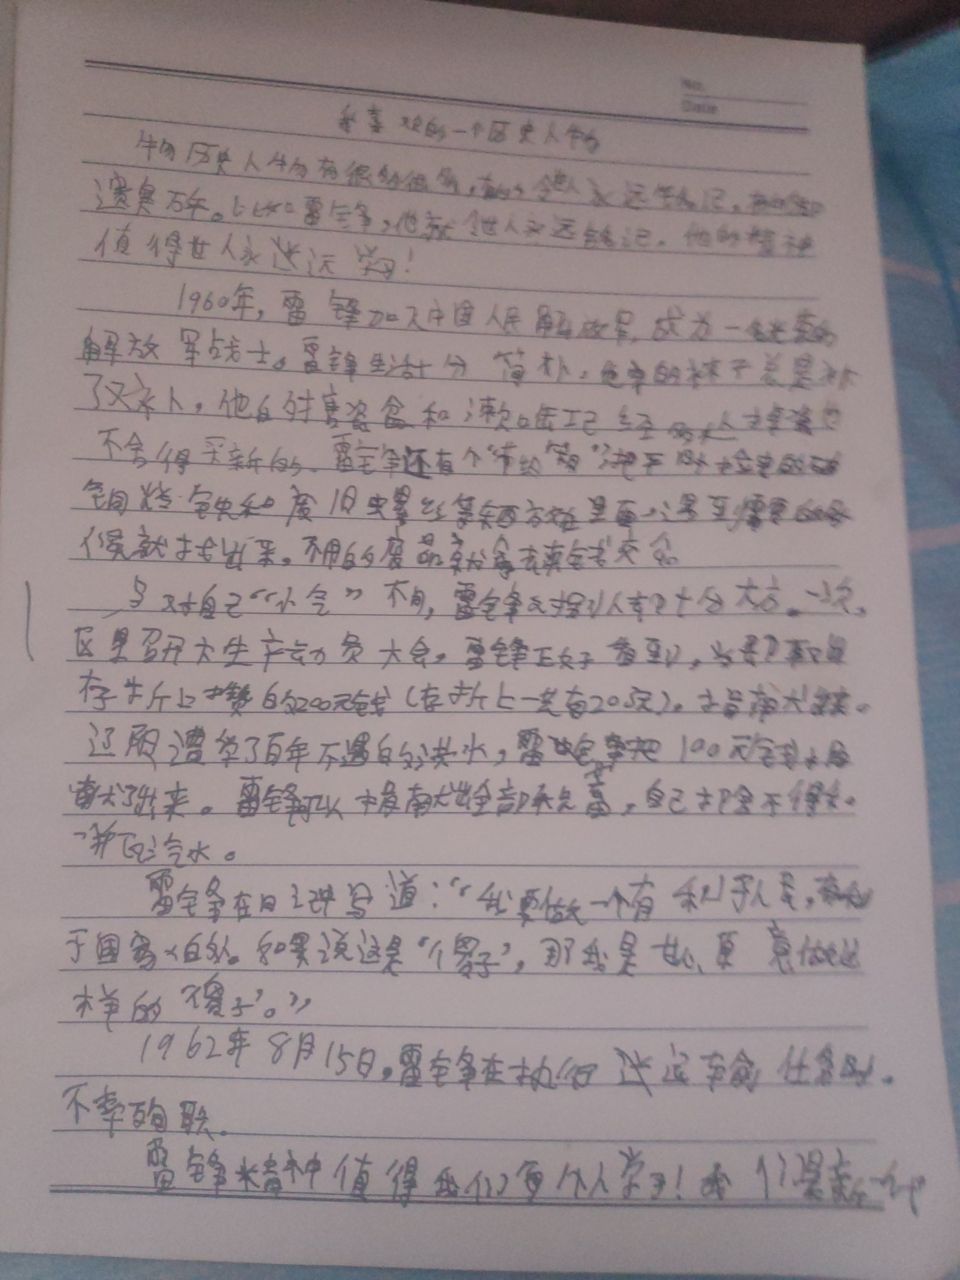 No.
Date
我喜欢的一个历史人物
历史人物有很多很多，有的令世人永远铭记，
遗臭万年。比如雷锋，他就令世人永远铭记，他的精神
值得世人永远学习！
1960年，雷锋加入中国人民解放军，成为一名光荣的
解放军战士。雷锋生活十分简朴，他穿的袜子总是补
了又补，他的搪瓷盆和漱口缸已经
不舍得买新的。雷锋还有个“节约箱”，把平时捡来的破
铜烂铁和废旧螺丝等东西放在里面，遇到需要的时
候就拿出来。不用的废品就拿去卖钱交公
与对自己“小气”不同，雷锋对别人却十分大方。一次，
区里召开大生产动员大会，雷锋正好看到，当即取出
存折上攒的200元钱（存折上一共有203元）。捐献出来。
辽阳遭受了百年不遇的洪水，雷锋把100元钱捐
献了出来。雷锋可以捐献出全部积蓄，自己却舍不得花。
一瓶汽水。
雷锋在日记中写道：“我要做一个有利于人民，有利
于国家的人。如果说这是“傻子”，那我是甘心愿意做这
样的“傻子”。”
1962年8月15日，雷锋在执行运输任务时，
不幸殉职。
雷锋精神值得我们每个人学习！我们